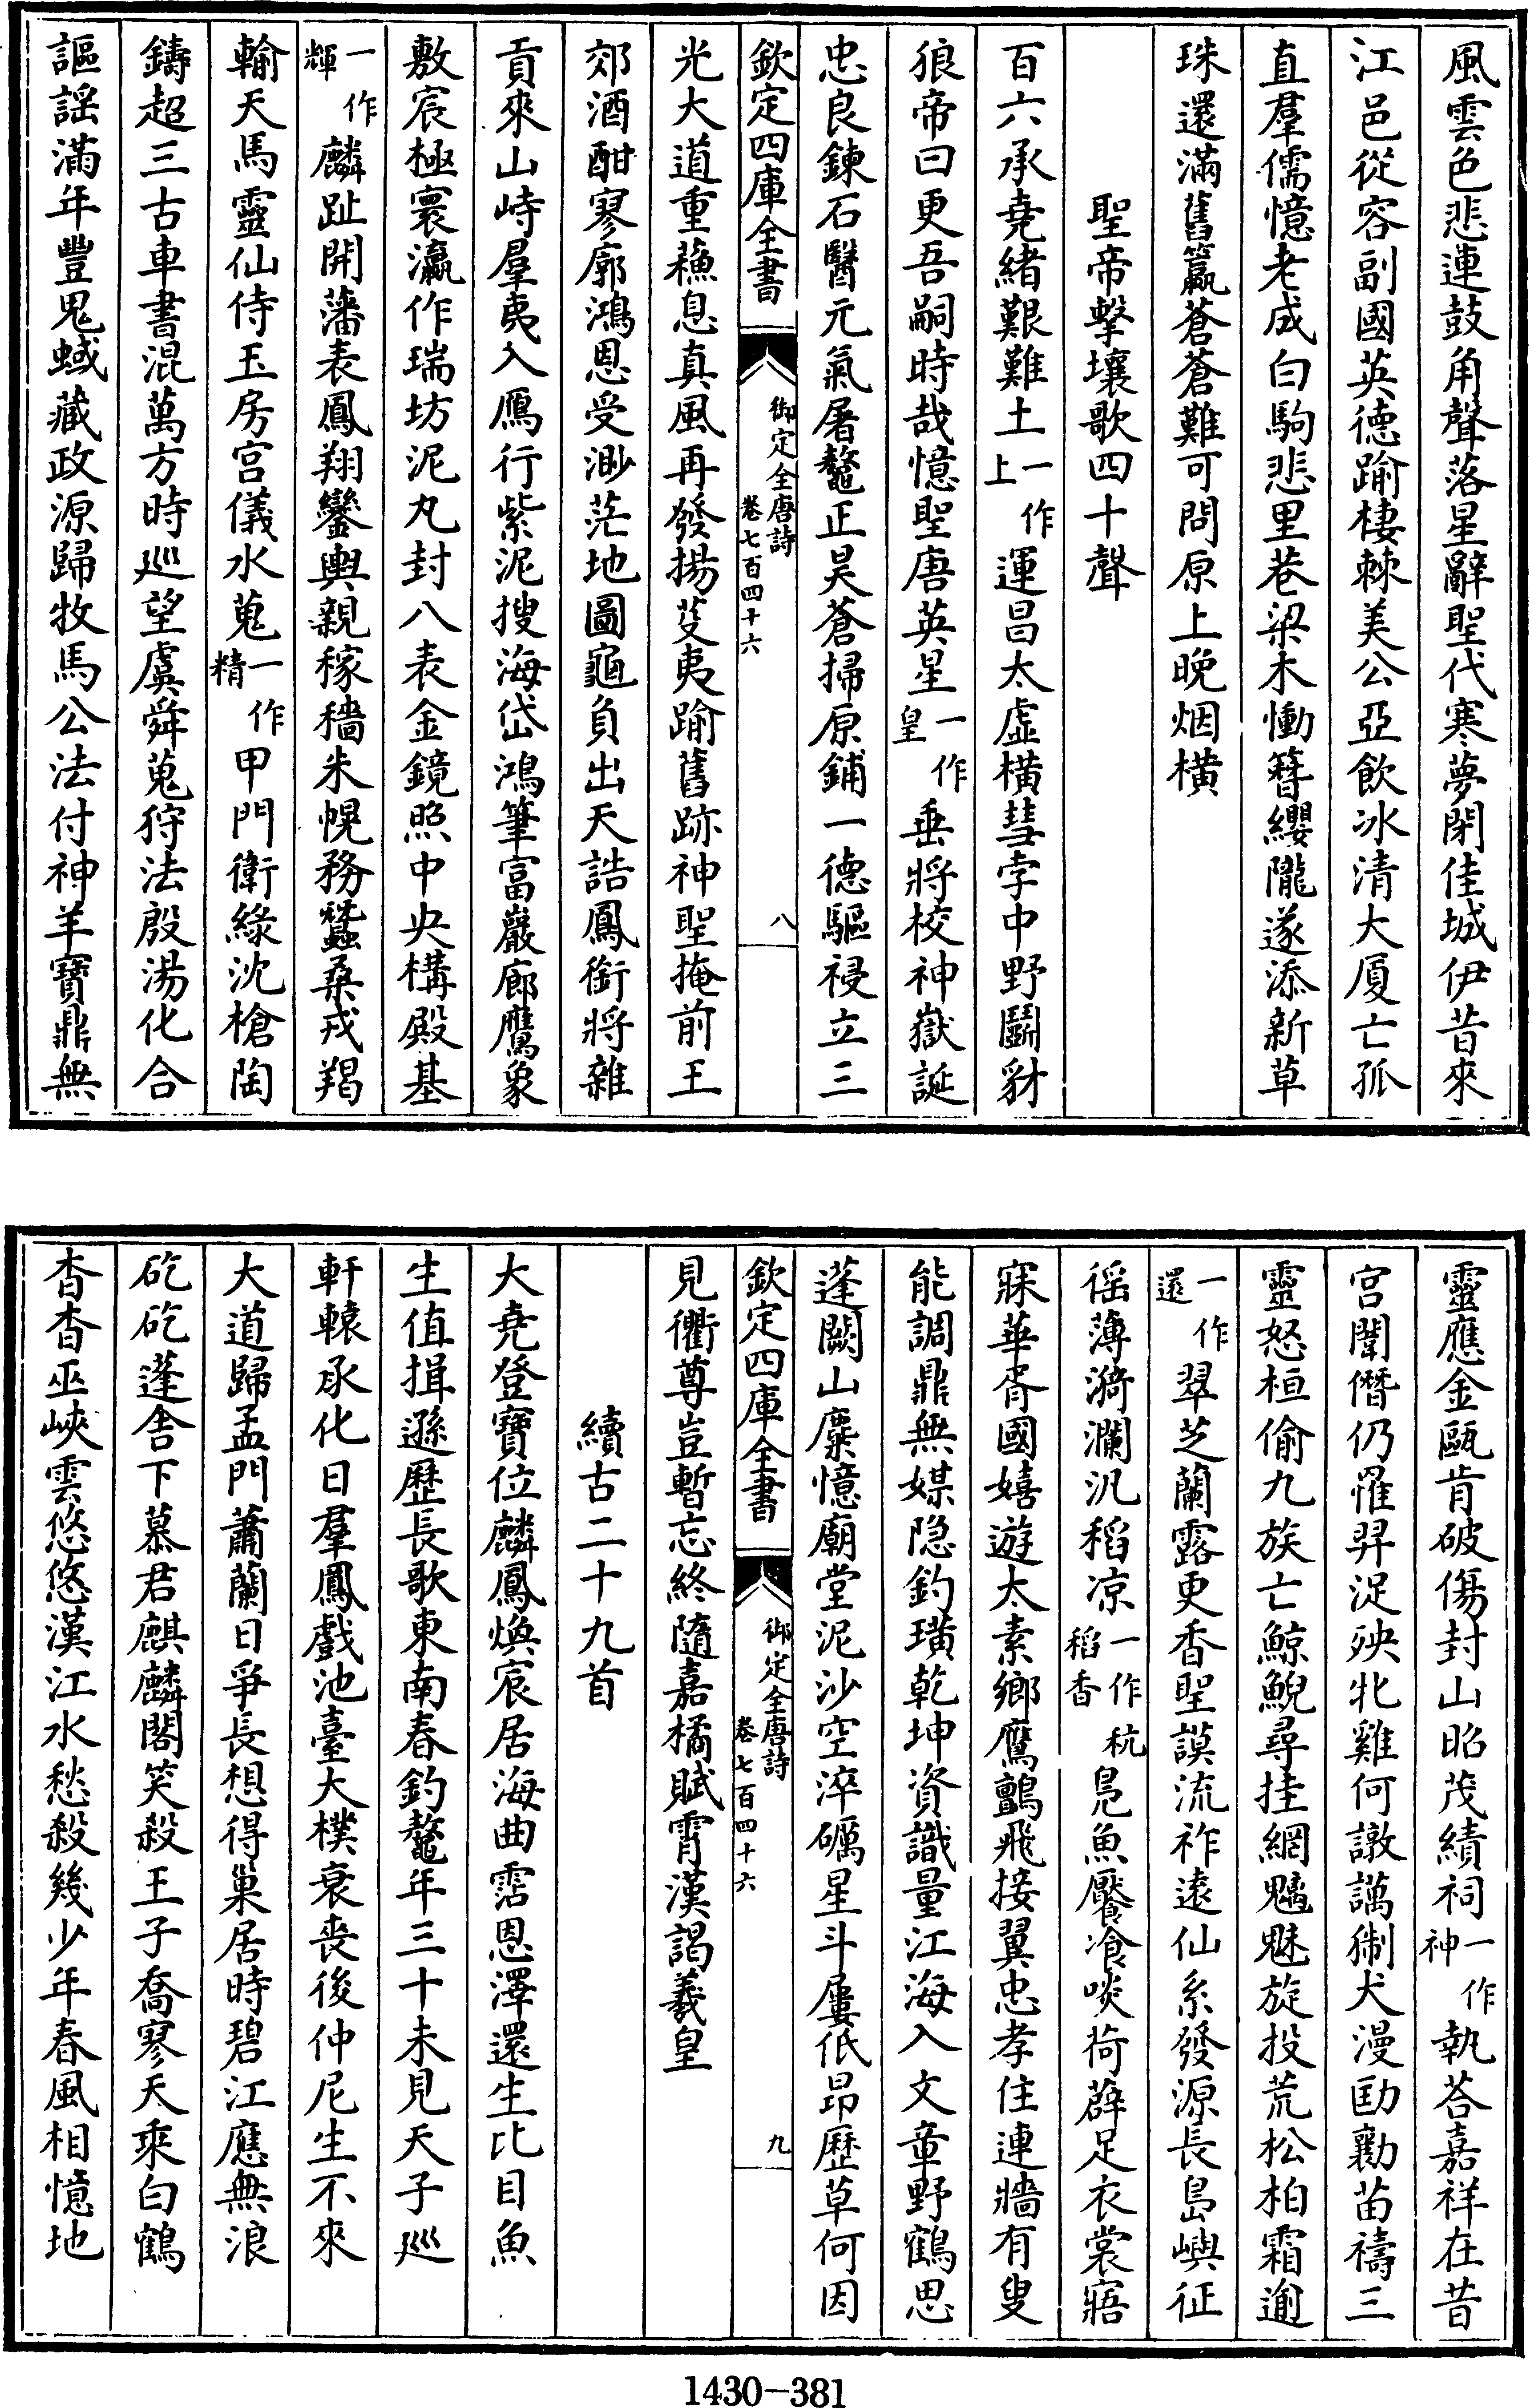 風雲色悲連鼓角聲落星辭聖代寒夢閉佳城伊昔來
江邑從容副國英徳踰棲棘美公亞飲冰清大厦亡孤
直羣儒憶老成白駒悲里巷梁木慟簪纓隴遂添新草
珠還滿舊籯蒼蒼難可問原上晚烟橫
聖帝擊壤歌四十聲
百六承堯緒艱難土一作上運昌太虛橫彗孛中野鬬豺
狼帝曰更吾嗣時哉憶聖唐英星一作皇垂將校神嶽誕
忠良鍊石醫元氣屠鼇正昊蒼掃原鋪一德驅祲立三
欽定四庫全書 御定全唐詩 卷七百四十六 八
光大道重蘓息真風再發揚芟夷踰舊跡神聖掩前王
郊酒酣寥廓鴻恩受渺茫地圖龜負出天誥鳳銜將雜
貢來山峙羣夷入鴈行紫泥搜海岱鴻筆富巖廊鷹象
敷宸極寰瀛作瑞坊泥丸封八表金鏡照中央構殿基
一作輝麟趾開藩表鳳翔鑾輿親稼穡朱幌務蠶桑戎羯
輸天馬靈仙侍玉房宫儀水蒐一作精甲門衛綠沈槍陶
鑄超三古車書混萬方時巡望虞舜蒐狩法殷湯化合
謳謡滿年豐鬼蜮藏政源歸牧馬公法付神羊寶鼎無
靈應金甌肯破傷封山昭茂績祠一作神執荅嘉祥在昔
宫闈僭仍罹羿浞殃牝雞何譈讁猘犬漫劻勷苗禱三
靈怒桓偷九族亡鯨鯢尋挂網魑魅旋投荒松柏霜逾
一作還翠芝蘭露更香聖謨流祚遠仙系發源長島嶼征
徭薄漪瀾汎稻凉一作杭稻香鳧魚饜飡啖荷薜足衣裳寤
寐華胥國嬉遊太素鄉鷹鸇飛接翼忠孝住連牆有叟
能調鼎無媒隐釣璜乾坤資識量江海入文章野鶴思
蓬闕山麋憶廟堂泥沙空淬礪星斗屢低昂歷草何因
欽定四庫全書 御定全唐詩 卷七百四十六 九
見衢尊豈暫忘終隨嘉橘賦霄漢謁羲皇
續古二十九首
大堯登寶位麟鳳煥宸居海曲霑恩澤還生比目魚
生值揖遜歷長歌東南春釣鼇年三十未見天子巡
軒轅承化日羣鳳戲池臺大樸衰喪後仲尼生不來
大道歸孟門蕭蘭日爭長想得巢居時碧江應無浪
矻矻蓬舍下慕君麒麟閣笑殺王子喬寥天乘白鶴
杳杳巫峽雲悠悠漢江水愁殺幾少年春風相憶地
1430-381